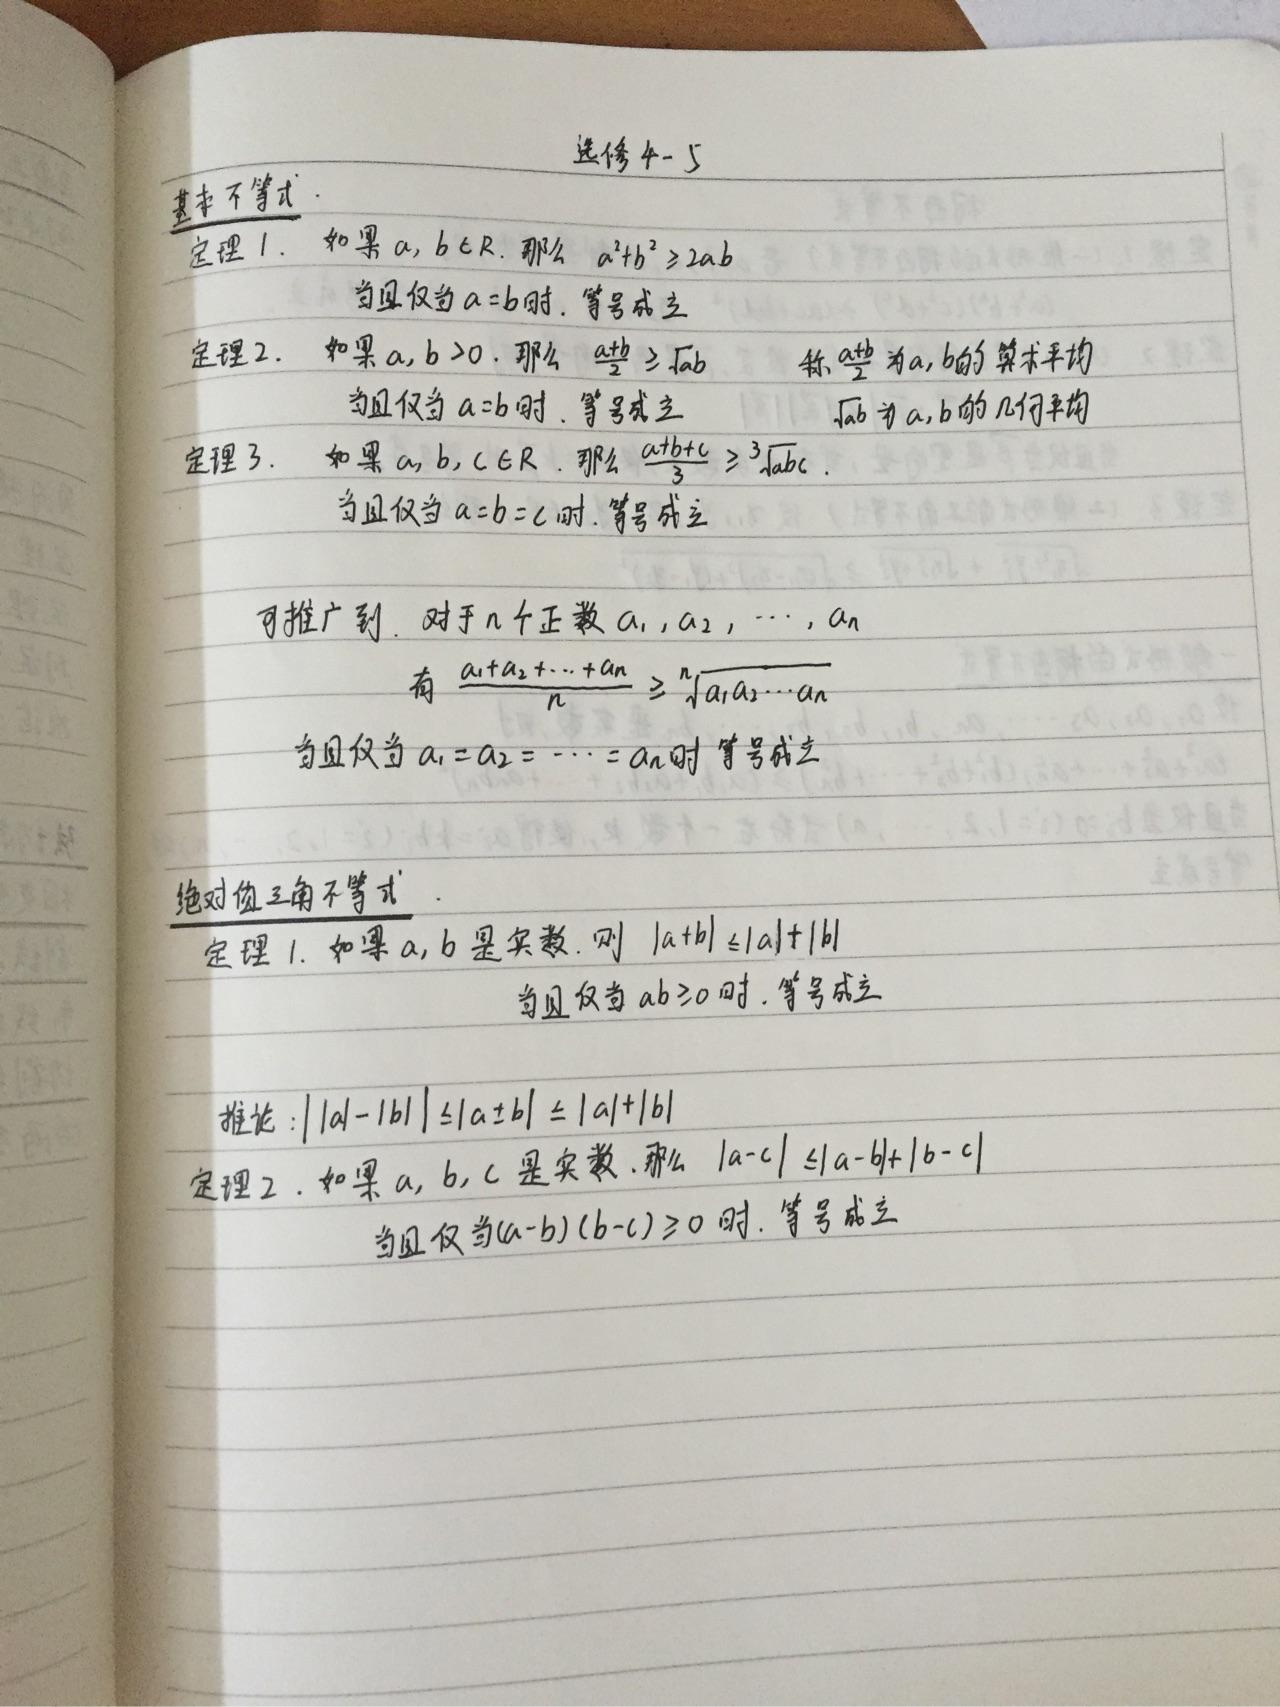 选修4-5
基本不等式.
定理1. 如果a, b∈R. 那么 a²+b²≥2ab
当且仅当a=b时. 等号成立
定理2. 如果a, b>0. 那么 (a+b)/2 ≥ √ab 称(a+b)/2为a, b的算术平均
当且仅当a=b时. 等号成立 √ab为a, b的几何平均
定理3. 如果a, b, c∈R. 那么 (a+b+c)/3 ≥ ³√abc.
当且仅当a=b=c时. 等号成立
可推广到. 对于n个正数a₁, a₂, ⋯, aₙ
有 (a₁+a₂+⋯+aₙ)/n ≥ ⁿ√a₁a₂⋯aₙ
当且仅当a₁=a₂=⋯=aₙ时 等号成立
绝对值三角不等式.
定理1. 如果a, b是实数. 则 |a+b|≤|a|+|b|
当且仅当ab≥0时. 等号成立
推论: ||a|-|b||≤|a±b|≤|a|+|b|
定理2. 如果a, b, c是实数. 那么 |a-c|≤|a-b|+|b-c|
当且仅当(a-b)(b-c)≥0时. 等号成立